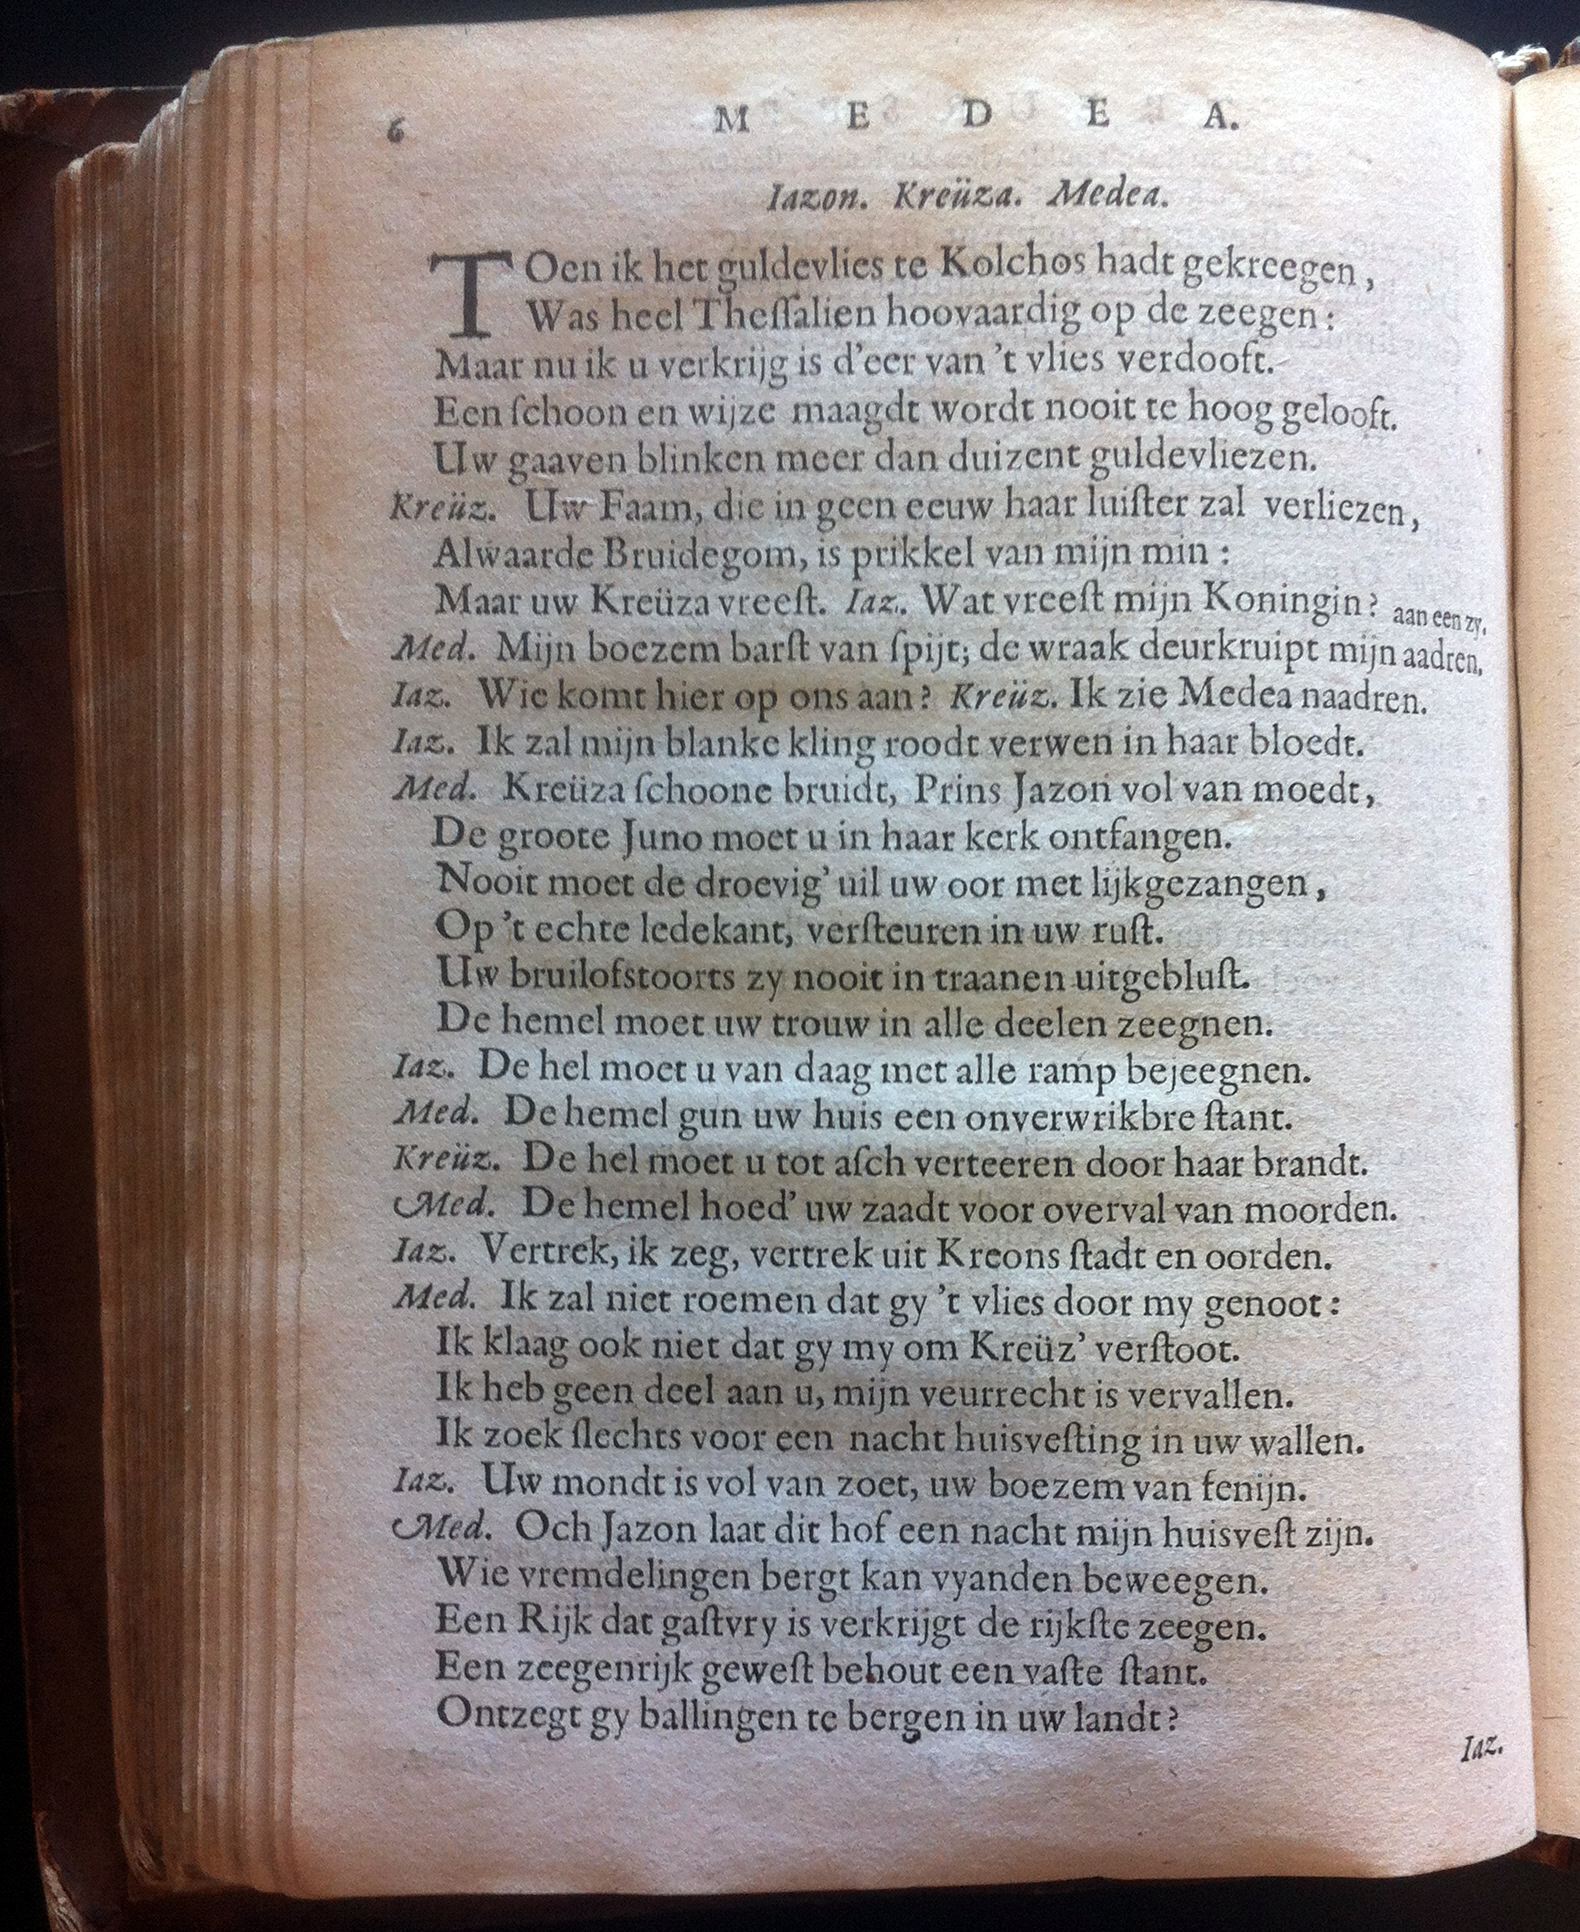 6 M E D E A.
Iazon. Kreüza. Medea.
TOen ik het guldevlies te Kolchos hadt gekreegen,
Was heel Theſſalien hoovaardig op de zeegen:
Maar nu ik u verkrijg is d'eer van 't vlies verdooft.
Een ſchoon en wijze maagdt wordt nooit te hoog gelooft.
Uw gaaven blinken meer dan duizent guldevliezen.
Kreüz. Uw Faam, die in geen eeuw haar luiſter zal verliezen,
Alwaarde Bruidegom, is prikkel van mijn min:
Maar uw Kreüza vreeſt. Iaz. Wat vreeſt mijn Koningin? aan een zy.
Med. Mijn boezem barſt van ſpijt; de wraak deurkruipt mijn aadren.
Iaz. Wie komt hier op ons aan? Kreüz. Ik zie Medea naadren.
Iaz. Ik zal mijn blanke kling roodt verwen in haar bloedt.
Med. Kreüza ſchoone bruidt, Prins Jazon vol van moedt,
De groote Juno moet u in haar kerk ontfangen.
Nooit moet de droevig' uil uw oor met lijkgezangen,
Op 't echte ledekant, verſteuren in uw ruſt.
Uw bruilofstoorts zy nooit in traanen uitgebluſt.
De hemel moet uw trouw in alle deelen zeegnen.
Iaz. De hel moet u van daag met alle ramp bejeegnen.
Med. De hemel gun uw huis een onverwrikbre ſtant.
Kreüz. De hel moet u tot aſch verteeren door haar brandt.
Med. De hemel hoed' uw zaadt voor overval van moorden.
Iaz. Vertrek, ik zeg, vertrek uit Kreons ſtadt en oorden.
Med. Ik zal niet roemen dat gy 't vlies door my genoot:
Ik klaag ook niet dat gy my om Kreüz' verſtoot.
Ik heb geen deel aan u, mijn veurrecht is vervallen.
Ik zoek ſlechts voor een nacht huisveſting in uw wallen.
Iaz. Uw mondt is vol van zoet, uw boezem van fenijn.
Med. Och Jazon laat dit hof een nacht mijn huisveſt zijn.
Wie vremdelingen bergt kan vyanden beweegen.
Een Rijk dat gaſtvry is verkrijgt de rijkſte zeegen.
Een zeegenrijk geweſt behout een vaſte ſtant.
Ontzegt gy ballingen te bergen in uw landt?
Iaz.